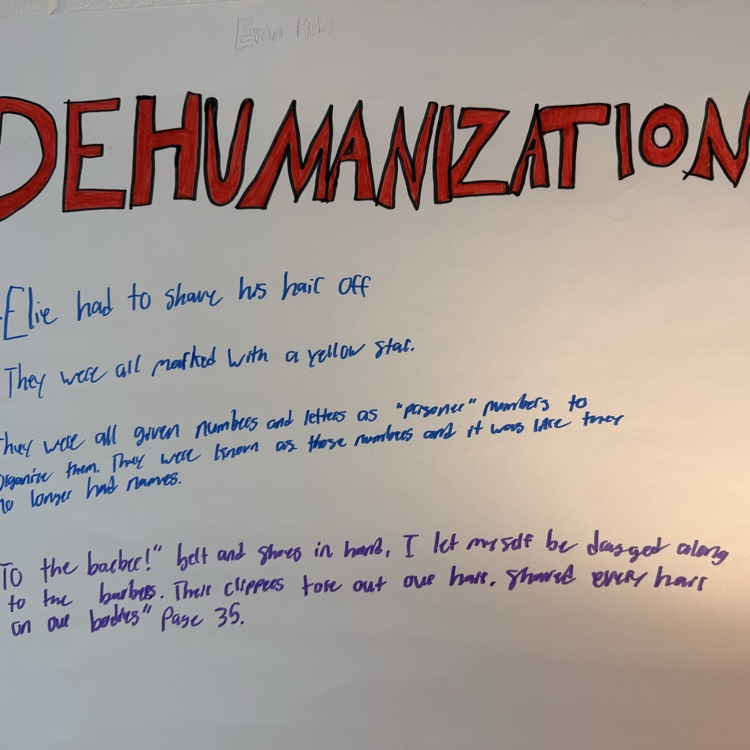 Evan
DEHUMANIZATION
Elie had to shave his hair off
They were all marked with a yellow star.
They were all given numbers and letters as "prisoner" numbers to
organize them. They were known as those numbers and it was like they
no longer had names.
To the barber!" belt and shoes in hand, I let myself be dragged along
to the barbers. Their clippers tore out our hair, shaved every hair
on our bodies" Page 35.